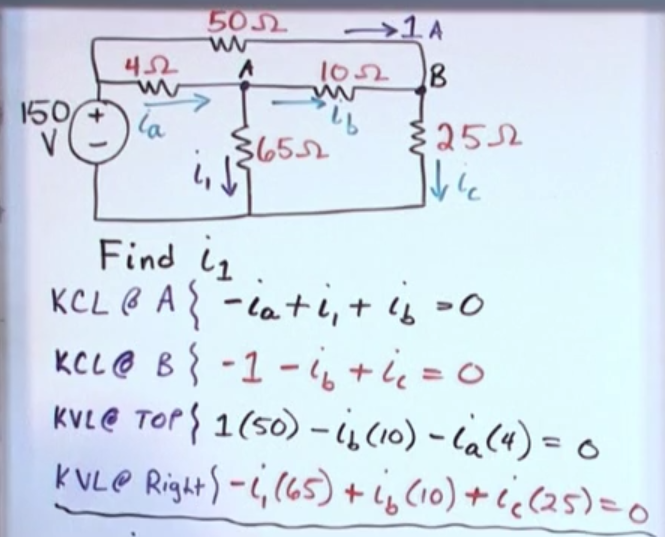 50Ω →1A
4Ω A 10Ω B
150 V + − ia ib
65Ω 25Ω
i₁ ic
Find i₁
KCL @ A { -ia + i₁ + ib = 0
KCL @ B { -1 - ib + ic = 0
KVL @ TOP { 1(50) - ib(10) - ia(4) = 0
KVL @ Right { -i₁(65) + ib(10) + ic(25) = 0